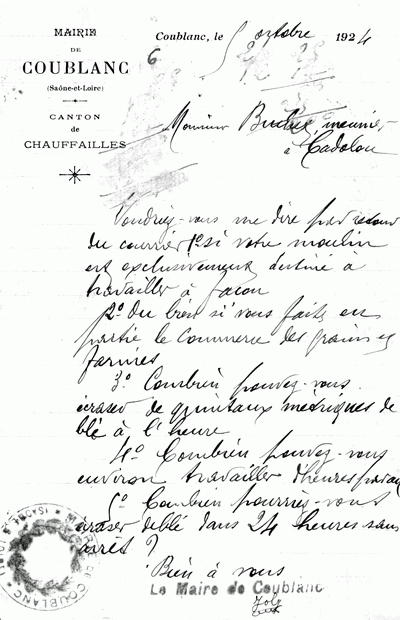 MAIRIE
DE
COUBLANC
(Saône-et-Loire)
CANTON
de
CHAUFFAILLES
Coublanc, le 5 octobre 1924
6
Monsieur meunier
à Cadolon
Voudriez-vous me dire par retour
du courrier 1º si votre moulin
est exclusivement destiné à
travailler à façon
2º Ou bien si vous faites en
partie le commerce des grains et
farines
3º Combien pouvez-vous
écraser de quintaux métriques de
blé à l'heure
4º Combien pouvez-vous
environ travailler d'heures par jour
5º Combien pourriez-vous
écraser de blé dans 24 heures sans
arrêt ?
Bien à vous
Le Maire de Coublanc
MAIRIE DE COUBLANC